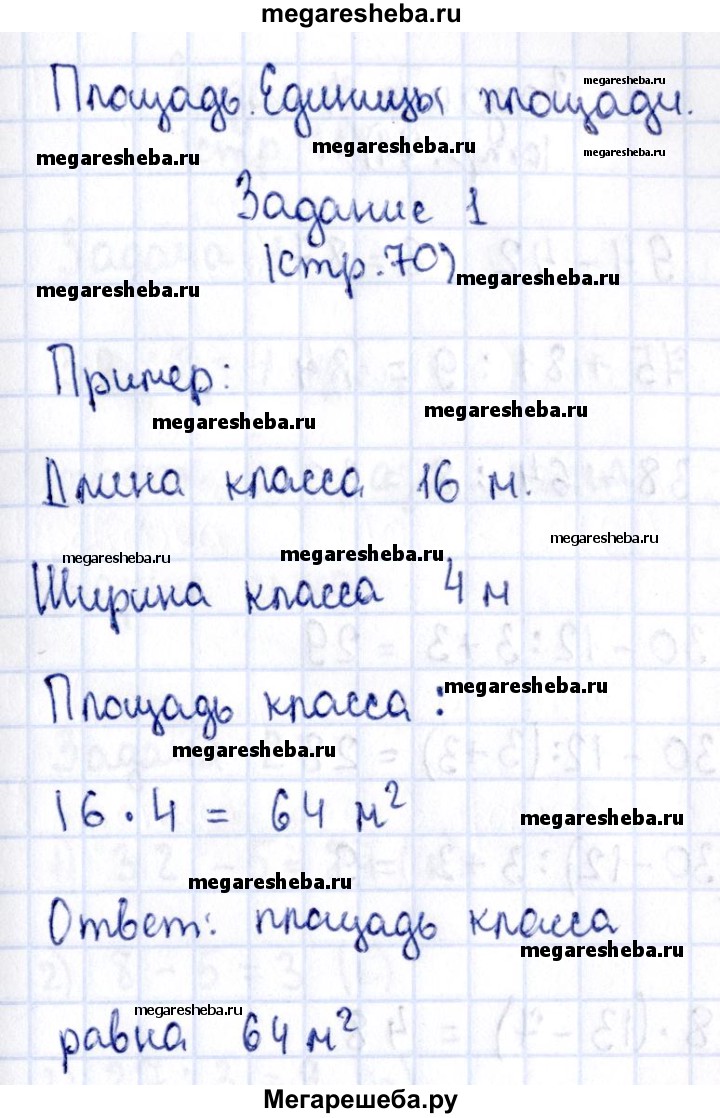 megaresheba.ru
Площадь. Единицы площади.
megaresheba.ru
megaresheba.ru
megaresheba.ru
megaresheba.ru
Задание 1
(стр. 70)
megaresheba.ru
megaresheba.ru
Пример:
megaresheba.ru
megaresheba.ru
Длина класса 16 м.
megaresheba.ru
megaresheba.ru
megaresheba.ru
Ширина класса 4 м
Площадь класса:
megaresheba.ru
megaresheba.ru
16 · 4 = 64 м²
megaresheba.ru
megaresheba.ru
Ответ: площадь класса
megaresheba.ru
megaresheba.ru
равна 64 м²
Мегарешеба.ру